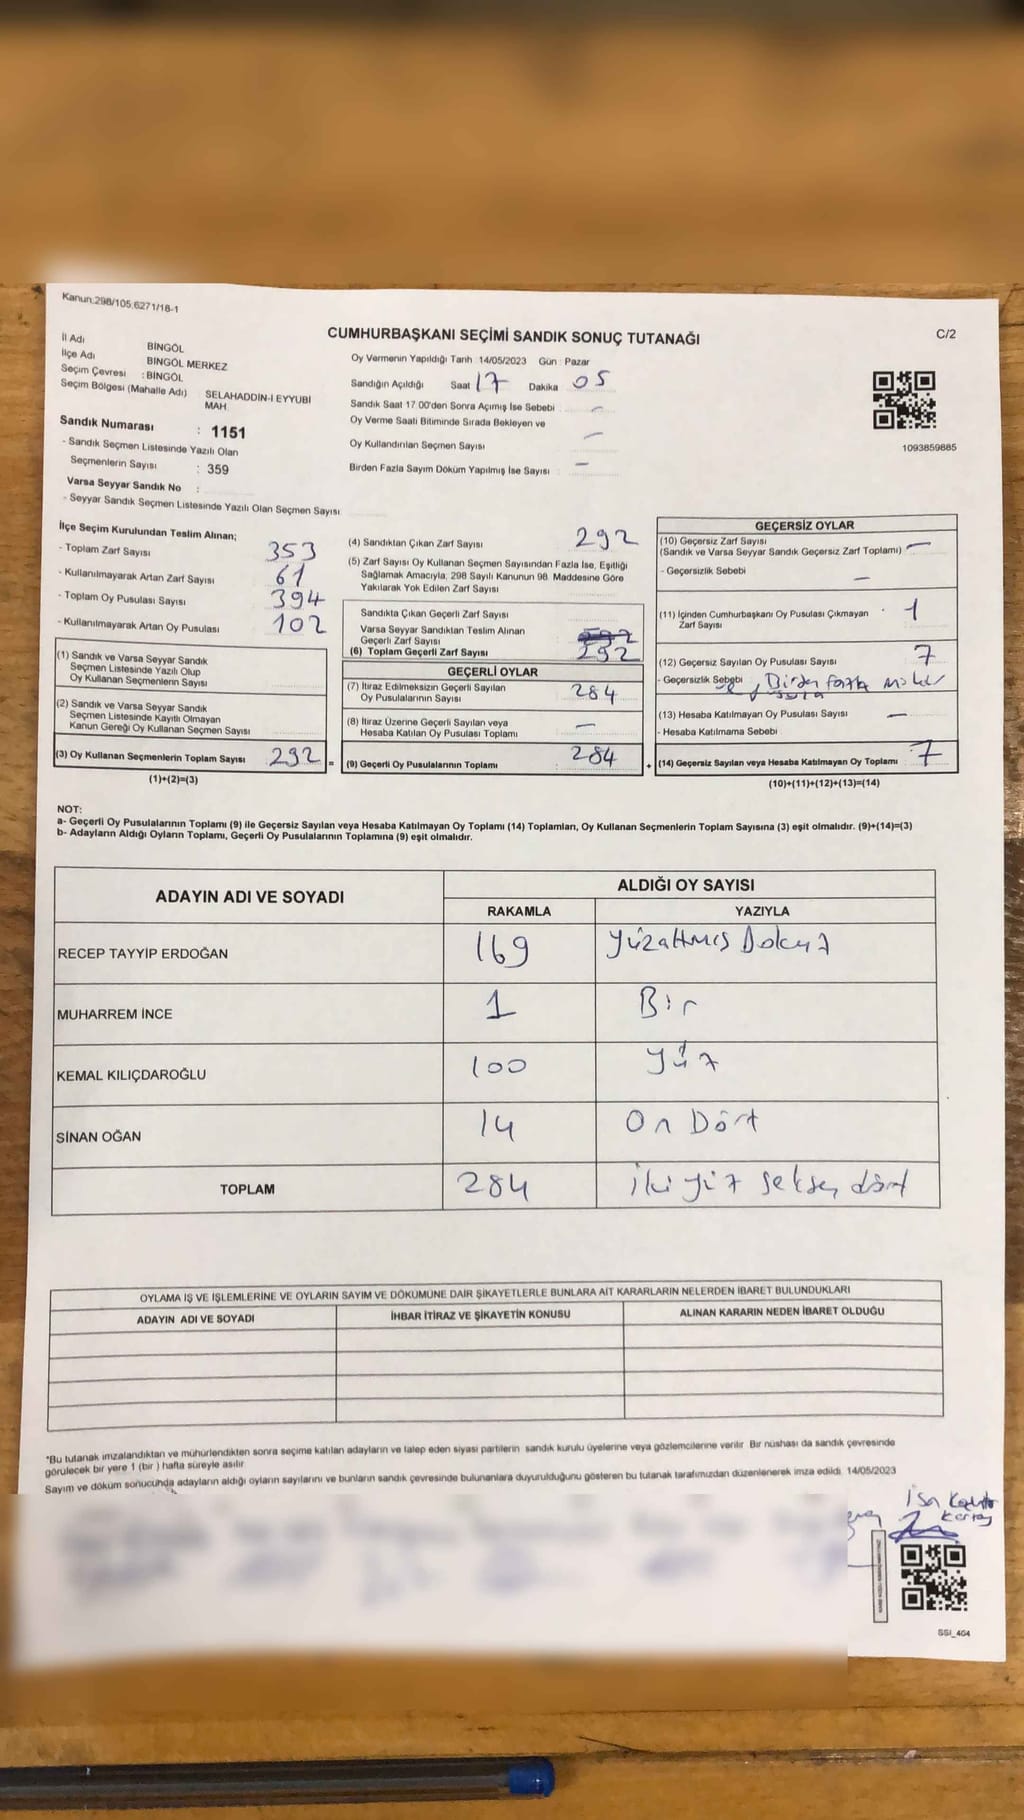 Kanun:298/105.6271/18-1
CUMHURBAŞKANI SEÇİMİ SANDIK SONUÇ TUTANAĞI
C/2
İl Adı BİNGÖL
İlçe Adı BİNGÖL MERKEZ
Seçim Çevresi : BİNGÖL
Seçim Bölgesi (Mahalle Adı) SELAHADDİN-İ EYYUBİ
MAH
Sandık Numarası : 1151
- Sandık Seçmen Listesinde Yazılı Olan
Seçmenlerin Sayısı : 359
Varsa Seyyar Sandık No :
- Seyyar Sandık Seçmen Listesinde Yazılı Olan Seçmen Sayısı
Oy Vermenin Yapıldığı Tarih 14/05/2023 Gün : Pazar
Sandığın Açıldığı Saat 17 Dakika 05
Sandık Saat 17:00'den Sonra Açımış İse Sebebi : -
Oy Verme Saati Bitiminde Sırada Bekleyen ve
Oy Kullandırılan Seçmen Sayısı -
Birden Fazla Sayım Döküm Yapılmış İse Sayısı : -
1093859885
İlçe Seçim Kurulundan Teslim Alınan;
- Toplam Zarf Sayısı 353
- Kullanılmayarak Artan Zarf Sayısı 61
- Toplam Oy Pusulası Sayısı 394
- Kullanılmayarak Artan Oy Pusulası 102
(1) Sandık ve Varsa Seyyar Sandık
Seçmen Listesinde Yazılı Olup
Oy Kullanan Seçmenlerin Sayısı
(2) Sandık ve Varsa Seyyar Sandık
Seçmen Listesinde Kayıtlı Olmayan
Kanun Gereği Oy Kullanan Seçmen Sayısı
(3) Oy Kullanan Seçmenlerin Toplam Sayısı 292 =
(1)+(2)=(3)
(4) Sandıktan Çıkan Zarf Sayısı 292
(5) Zarf Sayısı Oy Kullanan Seçmen Sayısından Fazla İse, Eşitliği
Sağlamak Amacıyla, 298 Sayılı Kanunun 98. Maddesine Göre
Yakılarak Yok Edilen Zarf Sayısı
Sandıkta Çıkan Geçerli Zarf Sayısı
Varsa Seyyar Sandıktan Teslim Alınan
Geçerli Zarf Sayısı 292
(6) Toplam Geçerli Zarf Sayısı 292
GEÇERLİ OYLAR
(7) İtiraz Edilmeksizin Geçerli Sayılan
Oy Pusulalarının Sayısı 284
(8) İtiraz Üzerine Geçerli Sayılan veya
Hesaba Katılan Oy Pusulası Toplamı -
(9) Geçerli Oy Pusulalarının Toplamı : 284 +
GEÇERSİZ OYLAR
(10) Geçersiz Zarf Sayısı
(Sandık ve Varsa Seyyar Sandık Geçersiz Zarf Toplamı) -
- Geçersizlik Sebebi -
(11) İçinden Cumhurbaşkanı Oy Pusulası Çıkmayan
Zarf Sayısı : 1
(12) Geçersiz Sayılan Oy Pusulası Sayısı 7
- Geçersizlik Sebebi Birden fazla
(13) Hesaba Katılmayan Oy Pusulası Sayısı -
- Hesaba Katılmama Sebebi
(14) Geçersiz Sayılan veya Hesaba Katılmayan Oy Toplamı : 7
(10)+(11)+(12)+(13)=(14)
NOT:
a- Geçerli Oy Pusulalarının Toplamı (9) ile Geçersiz Sayılan veya Hesaba Katılmayan Oy Toplamı (14) Toplamları, Oy Kullanan Seçmenlerin Toplam Sayısına (3) eşit olmalıdır. (9)+(14)=(3)
b- Adayların Aldığı Oyların Toplamı, Geçerli Oy Pusulalarının Toplamına (9) eşit olmalıdır.
ADAYIN ADI VE SOYADI ALDIĞI OY SAYISI
RAKAMLA YAZIYLA
RECEP TAYYİP ERDOĞAN 169 Yüzaltmış Dokuz
MUHARREM İNCE 1 Bir
KEMAL KILIÇDAROĞLU 100 Yüz
SİNAN OĞAN 14 On Dört
TOPLAM 284 iki yüz seksen dört
OYLAMA İŞ VE İŞLEMLERİNE VE OYLARIN SAYIM VE DÖKÜMÜNE DAİR ŞİKAYETLERLE BUNLARA AİT KARARLARIN NELERDEN İBARET BULUNDUKLARI
ADAYIN ADI VE SOYADI İHBAR İTİRAZ VE ŞİKAYETİN KONUSU ALINAN KARARIN NEDEN İBARET OLDUĞU
*Bu tutanak imzalandıktan ve mühürlendikten sonra seçime katılan adayların ve talep eden siyasi partilerin sandık kurulu üyelerine veya gözlemcilerine verilir. Bir nüshası da sandık çevresinde
görülecek bir yere 1 (bir ) hafta süreyle asılır.
Sayım ve döküm sonucunda adayların aldığı oyların sayılarını ve bunların sandık çevresinde bulunanlara duyurulduğunu gösteren bu tutanak tarafımızdan düzenlenerek imza edildi. 14/05/2023
SSI_404